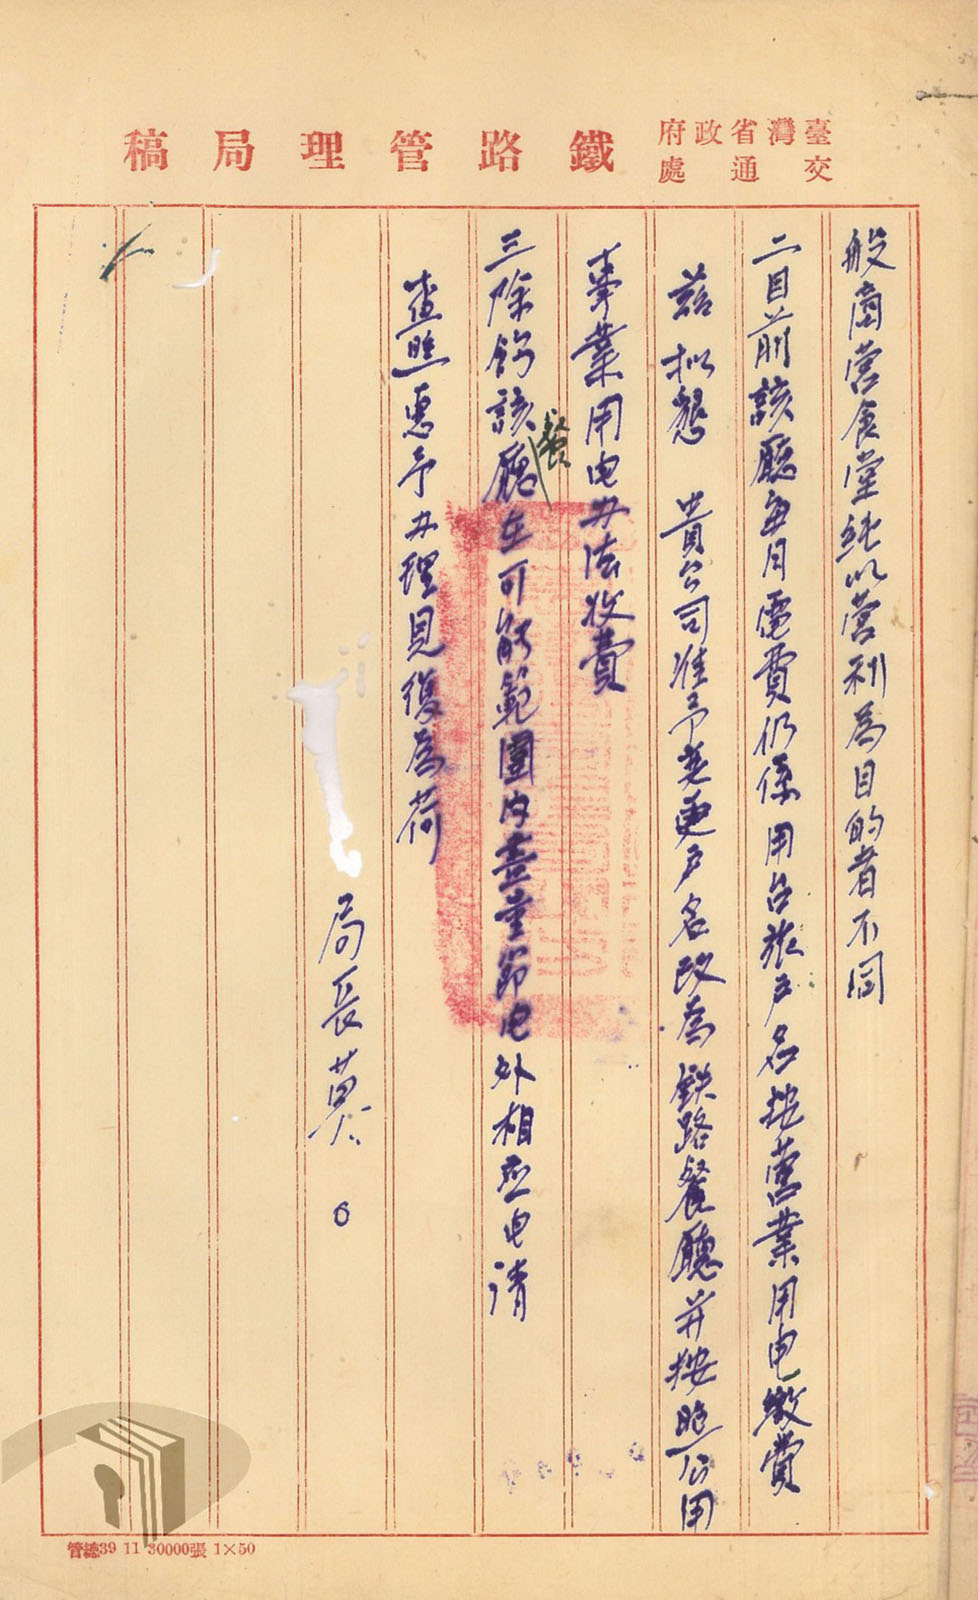 臺灣省政府
交通處
鐵路管理局稿
般商营食堂純以营利為目的者不同
二目前該廳每月電費仍係用台旅戶名按营業用电繳費
茲拟懇 貴公司准予变更戶名改為鉄路餐廳并按照公用
事業用电办法收費
三除飭該餐廳在可能範圍内盡量節电外相应电請
查照惠予办理見復為荷
局長莫。
管總39 11 30000張 1×50